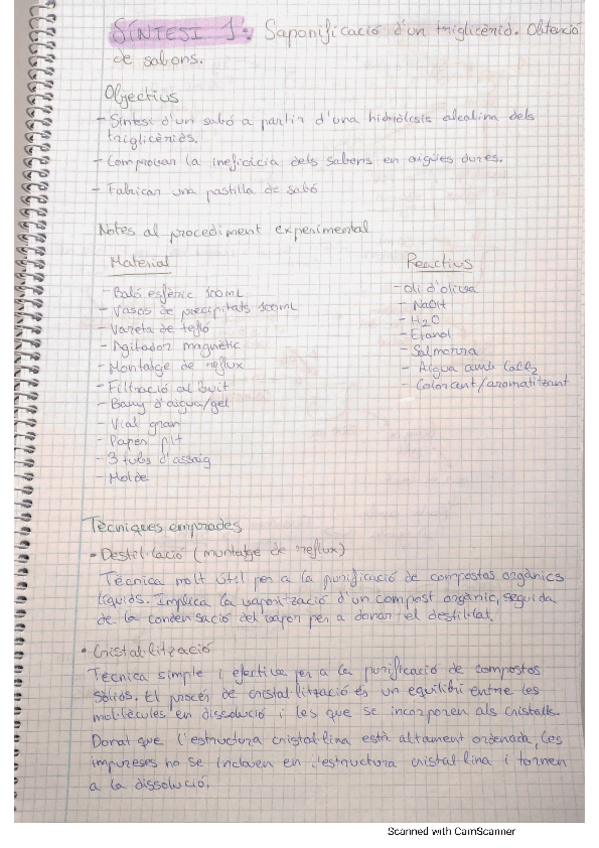 SÍNTESI 1: Saponificació d'un triglicèrid. Obtenció
de sabons.
Objectius
- Síntesi d'un sabó a partir d'una hidròlisis alcalina dels
triglicèrids.
- Comprovar la ineficàcia dels sabons en aigües dures.
- Fabricar una pastilla de sabó
Notes al procediment experimental
Material
- Baló esfèric 100mL
- Vasos de precipitats 100mL
- Vareta de tefló
- Agitador magnètic
- Montatge de reflux
- Filtració al buit
- Bany d'aigua/gel
- Vial gran
- Paper pH
- 3 tubs d'assaig
- Molde
Reactius
- Oli d'oliva
- NaOH
- H2O
- Etanol
- Salmorra
- Aigua amb CaCl2
- Colorant/aromatitzant
Tècniques emprades
• Destil·lació (muntatge de reflux)
Tècnica molt útil per a la purificació de compostos orgànics
líquids. Implica la vaporització d'un compost orgànic, seguida
de la condensació del vapor per a donar el destil·lat.
• Cristal·lització
Tècnica simple i efectiva per a la purificació de compostos
sòlids. El procés de cristal·lització és un equilibri entre les
molècules en dissolució i les que se incorporen als cristalls.
Donat que l'estructura cristal·lina està altament ordenada, les
impureses no se inclouen en l'estructura cristal·lina i tornen
a la dissolució.
Scanned with CamScanner